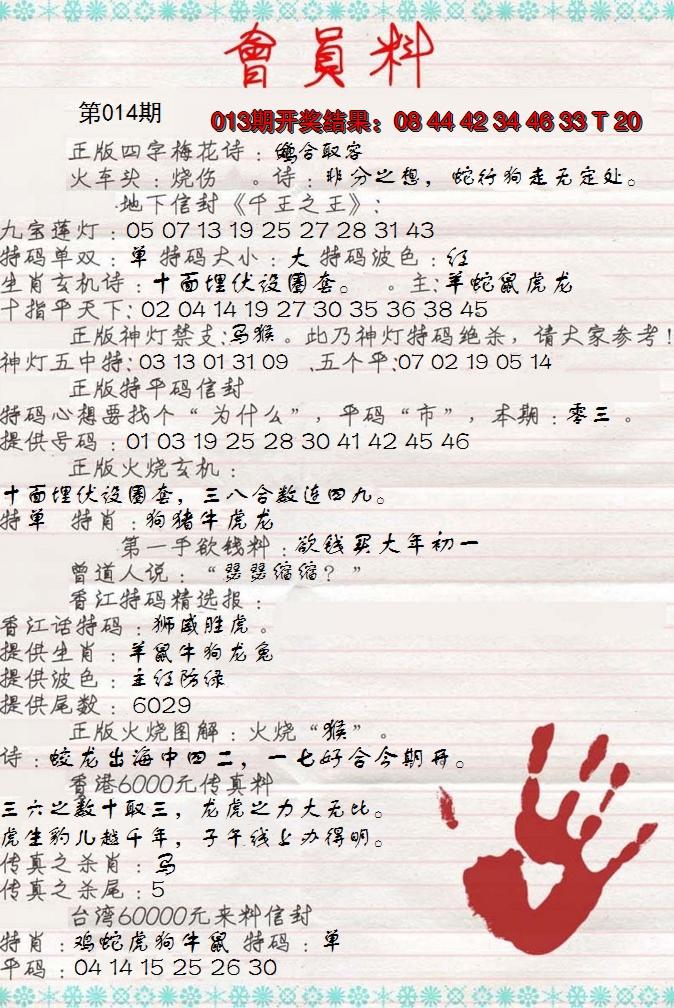 會員料
第014期
013期开奖结果：08 44 42 34 46 33 T 20
正版四字梅花诗：鸳合取容
火车头：烧伤 。诗：非分之想，蛇行狗走无定处。
地下信封《千王之王》：
九宝莲灯：05 07 13 19 25 27 28 31 43
特码单双：单 特码大小：大 特码波色：红
生肖玄机诗：十面埋伏设圈套。 。主：羊蛇鼠虎龙
十指平天下：02 04 14 19 27 30 35 36 38 45
正版神灯禁支：马猴。此乃神灯特码绝杀，请大家参考！
神灯五中特：03 13 01 31 09 .五个平：07 02 19 05 14
正版特平码信封
特码心想要找个“为什么”，平码“市”，本期：零三 。
提供号码：01 03 19 25 28 30 41 42 45 46
正版火烧玄机：
十面埋伏设圈套，三八合数连四九。
特单 特肖：狗猪牛虎龙
第一手欲钱料：欲钱买大年初一
曾道人说：“瑟瑟缩缩？”
香江特码精选报：
香江话特码：狮威胜虎。
提供生肖：羊鼠牛狗龙兔
提供波色：主红防绿
提供尾数：6029
正版火烧图解：火烧“猴”。
诗：蛟龙出海中四二，一七好合今期开。
香港6000元传真料
三六之数十取三，龙虎之力大无比。
虎生豹儿越千年，子午线上办得明。
传真之杀肖：马
传真之杀尾：5
台湾60000元来料信封
特肖：鸡蛇虎狗牛鼠 特码：单
平码：04 14 15 25 26 30